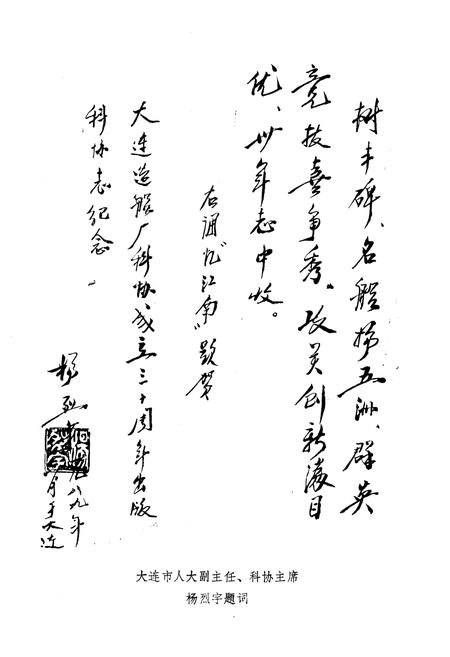 树丰碑、名船扬五洲、群英
竞技喜争秀。攻关创新项目
优、卅年志中收。
右调忆“江南”题贺
大连造船厂科协成立三十周年出版
科协志纪念。
杨烈
九八九年
月于大连
大连市人大副主任、科协主席
杨烈宇题词